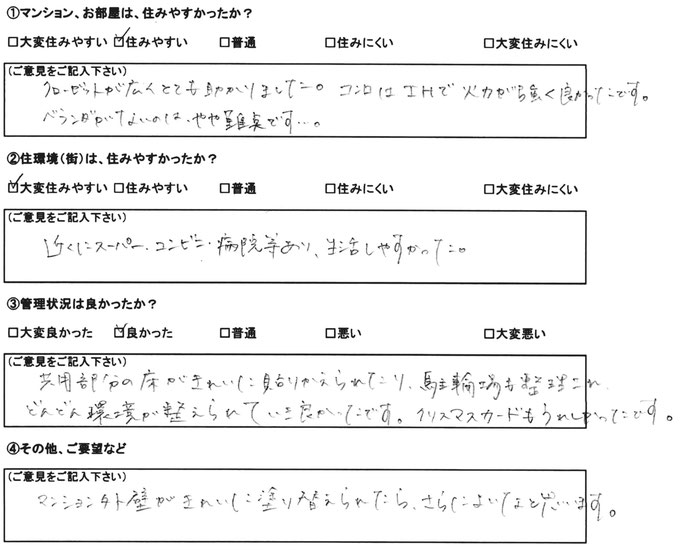 ①マンション、お部屋は、住みやすかったか？
□大変住みやすい ☑住みやすい □普通 □住みにくい □大変住みにくい
(ご意見をご記入下さい)
クローゼットが広くとても助かりました。コンロはIHで火力が強く良かったです。
ベランダがないのは、やや難点です…。
②住環境（街）は、住みやすかったか？
☑大変住みやすい □住みやすい □普通 □住みにくい □大変住みにくい
(ご意見をご記入下さい)
近くにスーパー・コンビニ・病院等あり、生活しやすかった。
③管理状況は良かったか？
□大変良かった ☑良かった □普通 □悪い □大変悪い
(ご意見をご記入下さい)
共用部分の床がきれいに貼りかえられたり、駐輪場も整理され、
どんどん環境が整えられていき良かったです。クリスマスカードもうれしかったです。
④その他、ご要望など
(ご意見をご記入下さい)
マンション外壁がきれいに塗り替えられたら、さらによいなと思います。